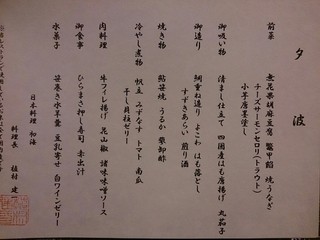 夕波
前菜　無花果胡麻豆腐　鼈甲餡　焼うなぎ
チーズサーモンセロリ（トラウト）
小芋唐墨塗し
御吸い物　清まし仕立て　四国産はも唐揚げ　丸茄子
御造り　網重ね造り　よこわ　はも落とし
すずきあらい　煎り酒
焼き物　鮎笹焼　うるか　蓼卸酢
冷やし煮物　帆立　みずなす　トマト　南瓜
干し貝柱ゼリー
肉料理　牛フィレ揚げ　昆布籠　諸味味噌ソース
御食事　ひらまさ押し寿司　赤出汁
水菓子　笹巻き水羊羹　豆乳寄せ　白ワインゼリー
日本料理　和海
料理長　植村　建